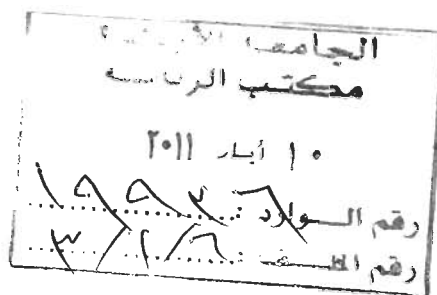 الجامعة الأردنية
مكتب الرئاسة
١٠ أيار ٢٠١١
رقم الــوارد :
رقم الملــف :